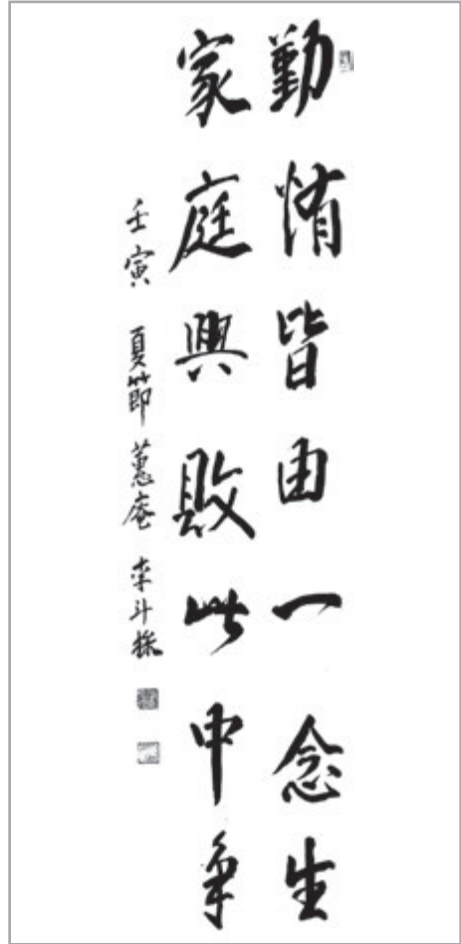 勤惰皆由一念生
家庭興敗此中爭
壬寅 夏節 蕙庵 李斗